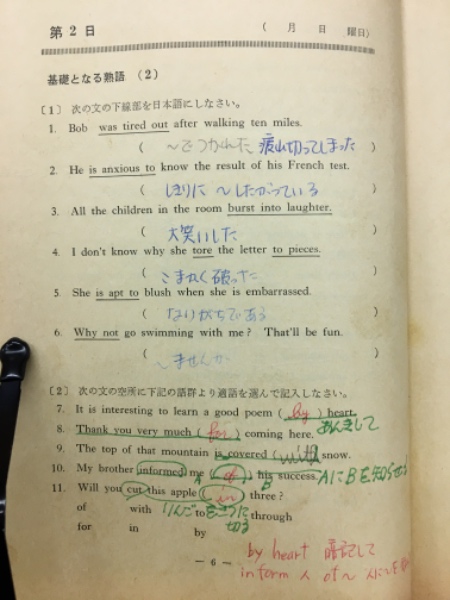 第 2 日
( 月 日 曜日)
基礎となる熟語 (2)
〔1〕 次の文の下線部を日本語にしなさい。
1. Bob was tired out after walking ten miles.
( ～でつかれた 疲れ切ってしまった )
2. He is anxious to know the result of his French test.
( しきりに ～したがっている )
3. All the children in the room burst into laughter.
( 大笑いした )
4. I don't know why she tore the letter to pieces.
( こまかく破った )
5. She is apt to blush when she is embarrassed.
( なりがちである )
6. Why not go swimming with me? That'll be fun.
( ～ませんか )
〔2〕 次の文の空所に下記の語群より適語を選んで記入しなさい。
7. It is interesting to learn a good poem ( by ) heart.
8. Thank you very much ( for ) coming here. あんきして
9. The top of that mountain is covered ( with ) snow.
10. My brother informed me ( of ) his success. AにBを知らせる
A B
11. Will you cut this apple ( in ) three?
of with to through
りんごを
切る
for in by
by heart 暗記して
inform 人 of ～
— 6 —